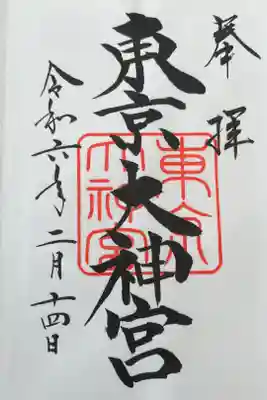 奉拝
東京大神宮
令和六年二月十四日
東京
大神宮